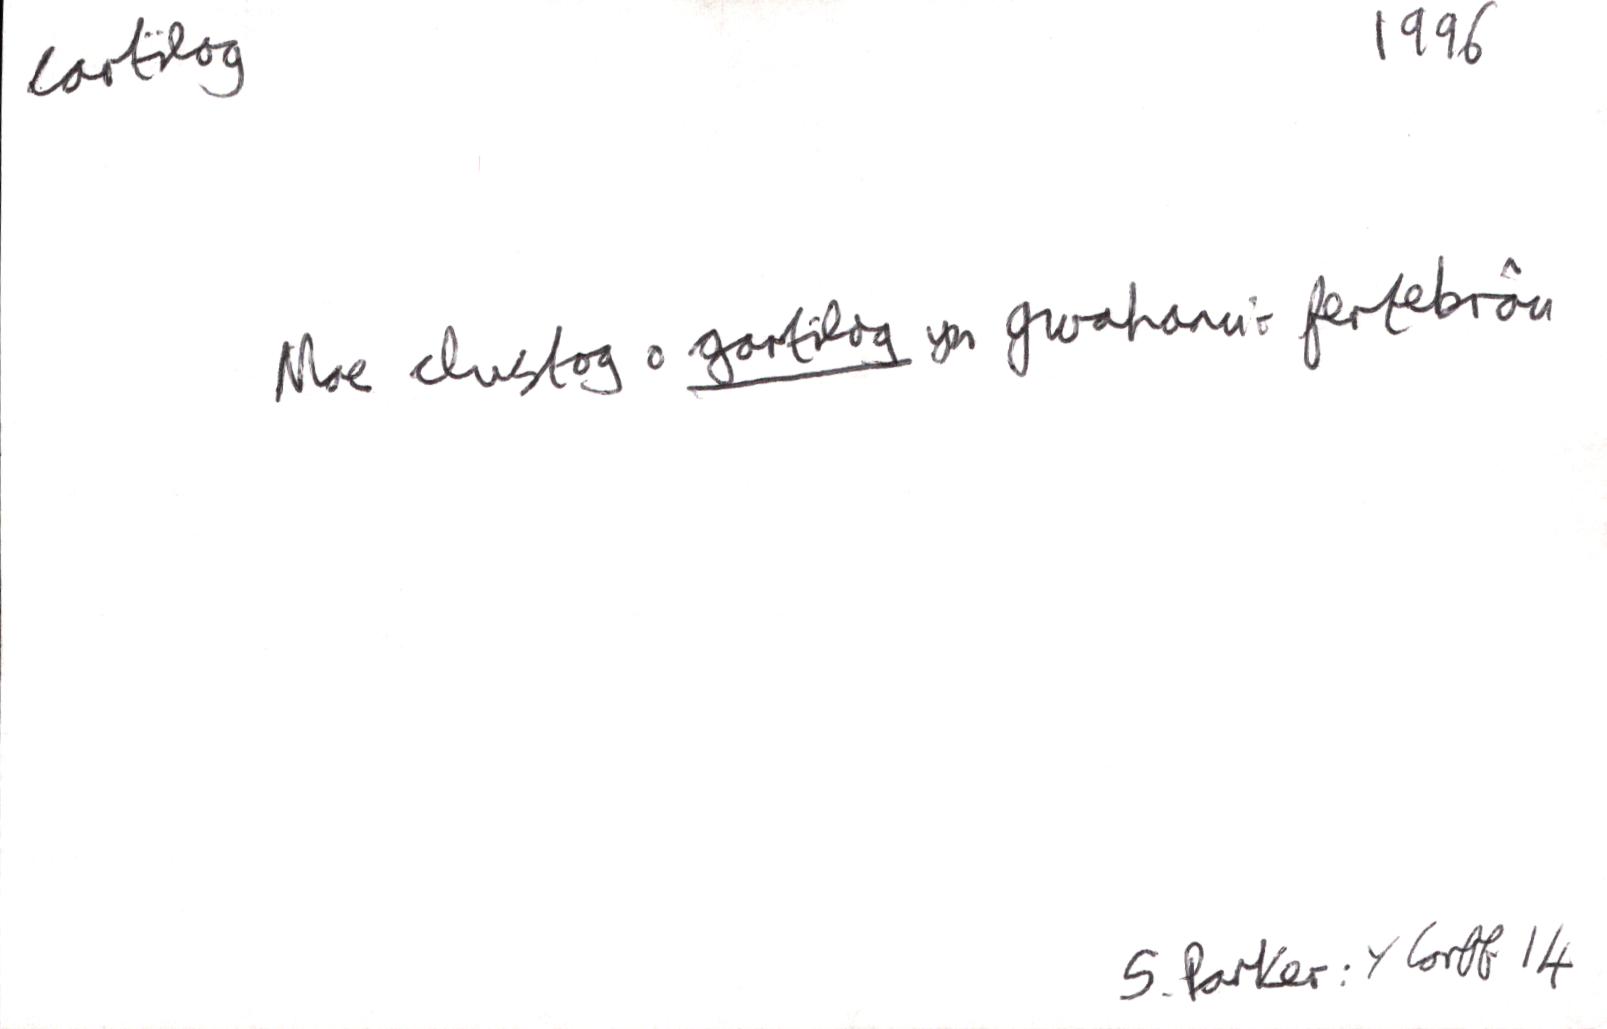 cartilag
1996
Mae clustog o gartilag yn gwahanu'r fertebrâu
S. Parker: Y Corff 14